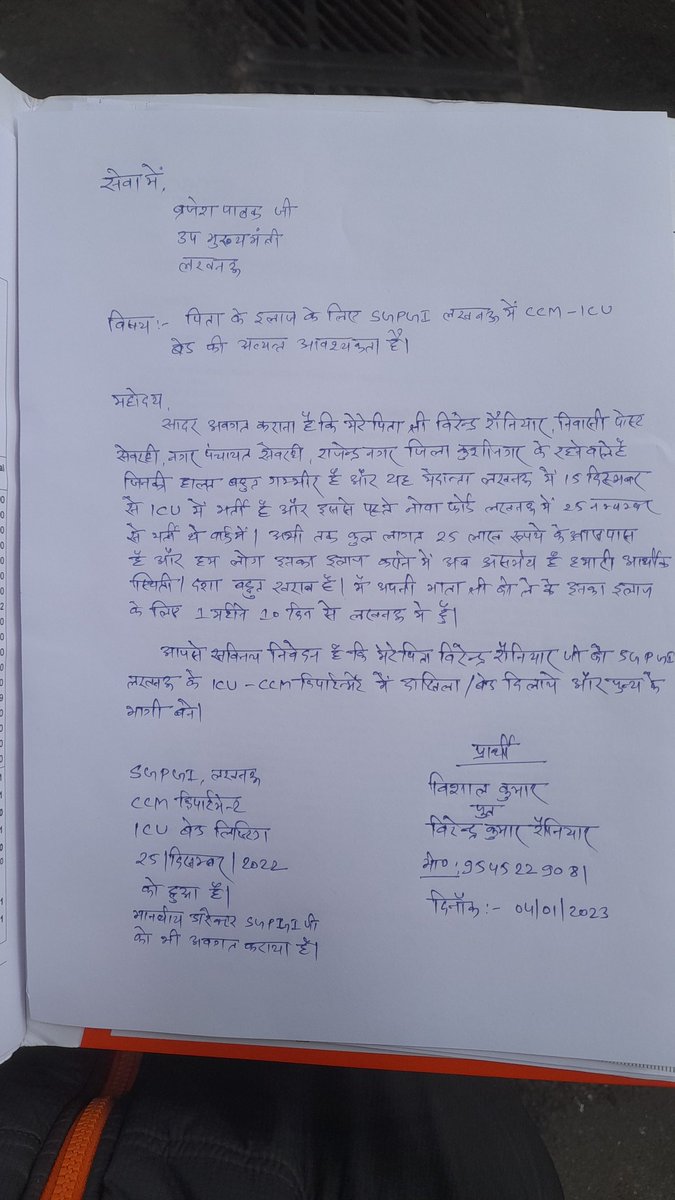 सेवा में,
ब्रजेश पाठक जी
उप मुख्यमंत्री
लखनऊ
विषय:- पिता के इलाज के लिए SGPGI लखनऊ में CCM-ICU
बेड की अत्यन्त आवश्यकता है।
महोदय,
सादर अवगत कराना है कि मेरे पिता श्री विरेन्द्र रौनियार, निवासी पोस्ट
सेवरही, नगर पंचायत सेवरही, राजेन्द्र नगर जिला कुशीनगर के रहने वाले है
जिनकी हालत बहुत गम्भीर है और यह मेदान्ता लखनऊ में 15 दिसम्बर
से ICU में भर्ती है और इससे पहले नोवा फोर्ड लखनऊ में 25 नवम्बर
से भर्ती थे वार्ड में। अभी तक कुल लागत 25 लाख रूपये के आसपास
है और हम लोग इनका इलाज कराने में अब असमर्थ है हमारी आर्थिक
स्थिती। दशा बहुत खराब है। मैं अपनी माता श्री को ले के इनका इलाज
के लिए 1 महीने 10 दिन से लखनऊ में हूँ।
आपसे सविनय निवेदन है कि मेरे पिता विरेन्द्र रौनियार जी को SGPGI
लखनऊ के ICU-CCM डिपार्टमेंट में दाखिला/बेड दिलाये और पून्य के
भागी बने।
प्रार्थी
SGPGI, लखनऊ
विशाल कुमार
CCM डिपार्टमेन्ट
पुत्र
ICU बेड लिस्टिंग
विरेन्द्र कुमार रौनियार
25/दिसम्बर/2022
मो०:9545229081
को हुआ है।
दिनाँक:- 04/01/2023
माननीय डारेक्टर SGPGI जी
को भी अवगत कराया है।